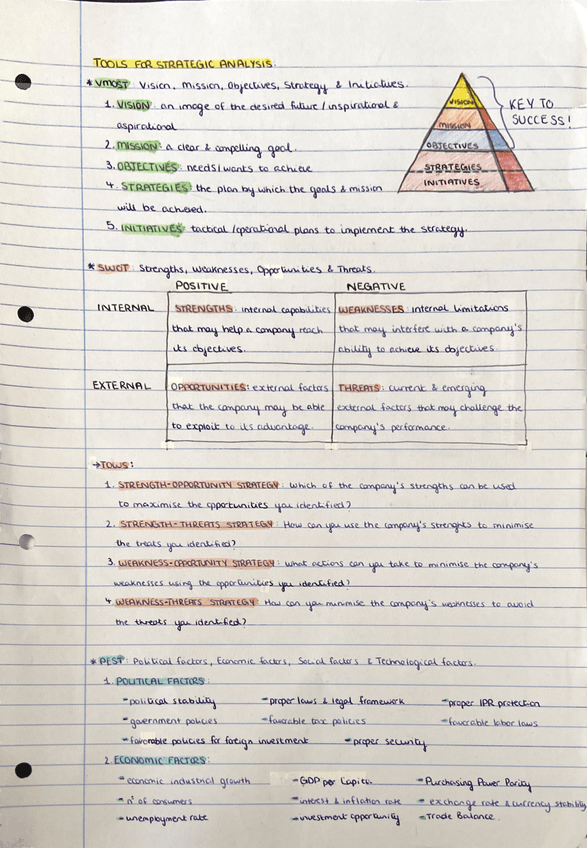 TOOLS FOR STRATEGIC ANALYSIS.
* VMOST: Vision, Mission, Objectives, Strategy & Initiatives.
1. VISION: an image of the desired future / inspirational &
aspirational
2. MISSION: a clear & compelling goal.
3. OBJECTIVES: needs/wants to achieve
4. STRATEGIES: the plan by which the goals & mission
will be achieved.
5. INITIATIVES: tactical/operational plans to implement the strategy.
VISION
MISSION
OBJECTIVES
STRATEGIES
INITIATIVES
KEY TO
SUCCESS!
* SWOT: Strengths, Weaknesses, Opportunities & Threats.
POSITIVE NEGATIVE
INTERNAL
STRENGTHS: internal capabilities
that may help a company reach
its objectives.
WEAKNESSES: internal limitations
that may interfere with a company's
ability to achieve its objectives.
EXTERNAL
OPPORTUNITIES: external factors
that the company may be able
to exploit to its advantage.
THREATS: current & emerging
external factors that may challenge the
company's performance.
→TOWS:
1. STRENGTH-OPPORTUNITY STRATEGY: Which of the company's strengths can be used
to maximise the opportunities you identified?
2. STRENGTH-THREATS STRATEGY: How can you use the company's strenghts to minimise
the treats you identified?
3. WEAKNESS-OPPORTUNITY STRATEGY: What actions can you take to minimise the company's
weaknesses using the opportunities you identified?
4. WEAKNESS-THREATS STRATEGY: How can you minimise the company's weaknesses to avoid
the threats you identified?
* PEST: Political factors, Economic factors, Social factors & Technological factors.
1. POLITICAL FACTORS:
- political stability - proper laws & legal framework - proper IPR protection
- government policies - favorable tax policies - favorable labor laws
- favorable policies for foreign investment - proper security
2. ECONOMIC FACTORS:
- economic industrial growth - GDP per Capita - Purchasing Power Parity
- nº of consumers - interest & inflation rate - exchange rate & currency stability
- unemployment rate - investment opportunity - Trade Balance